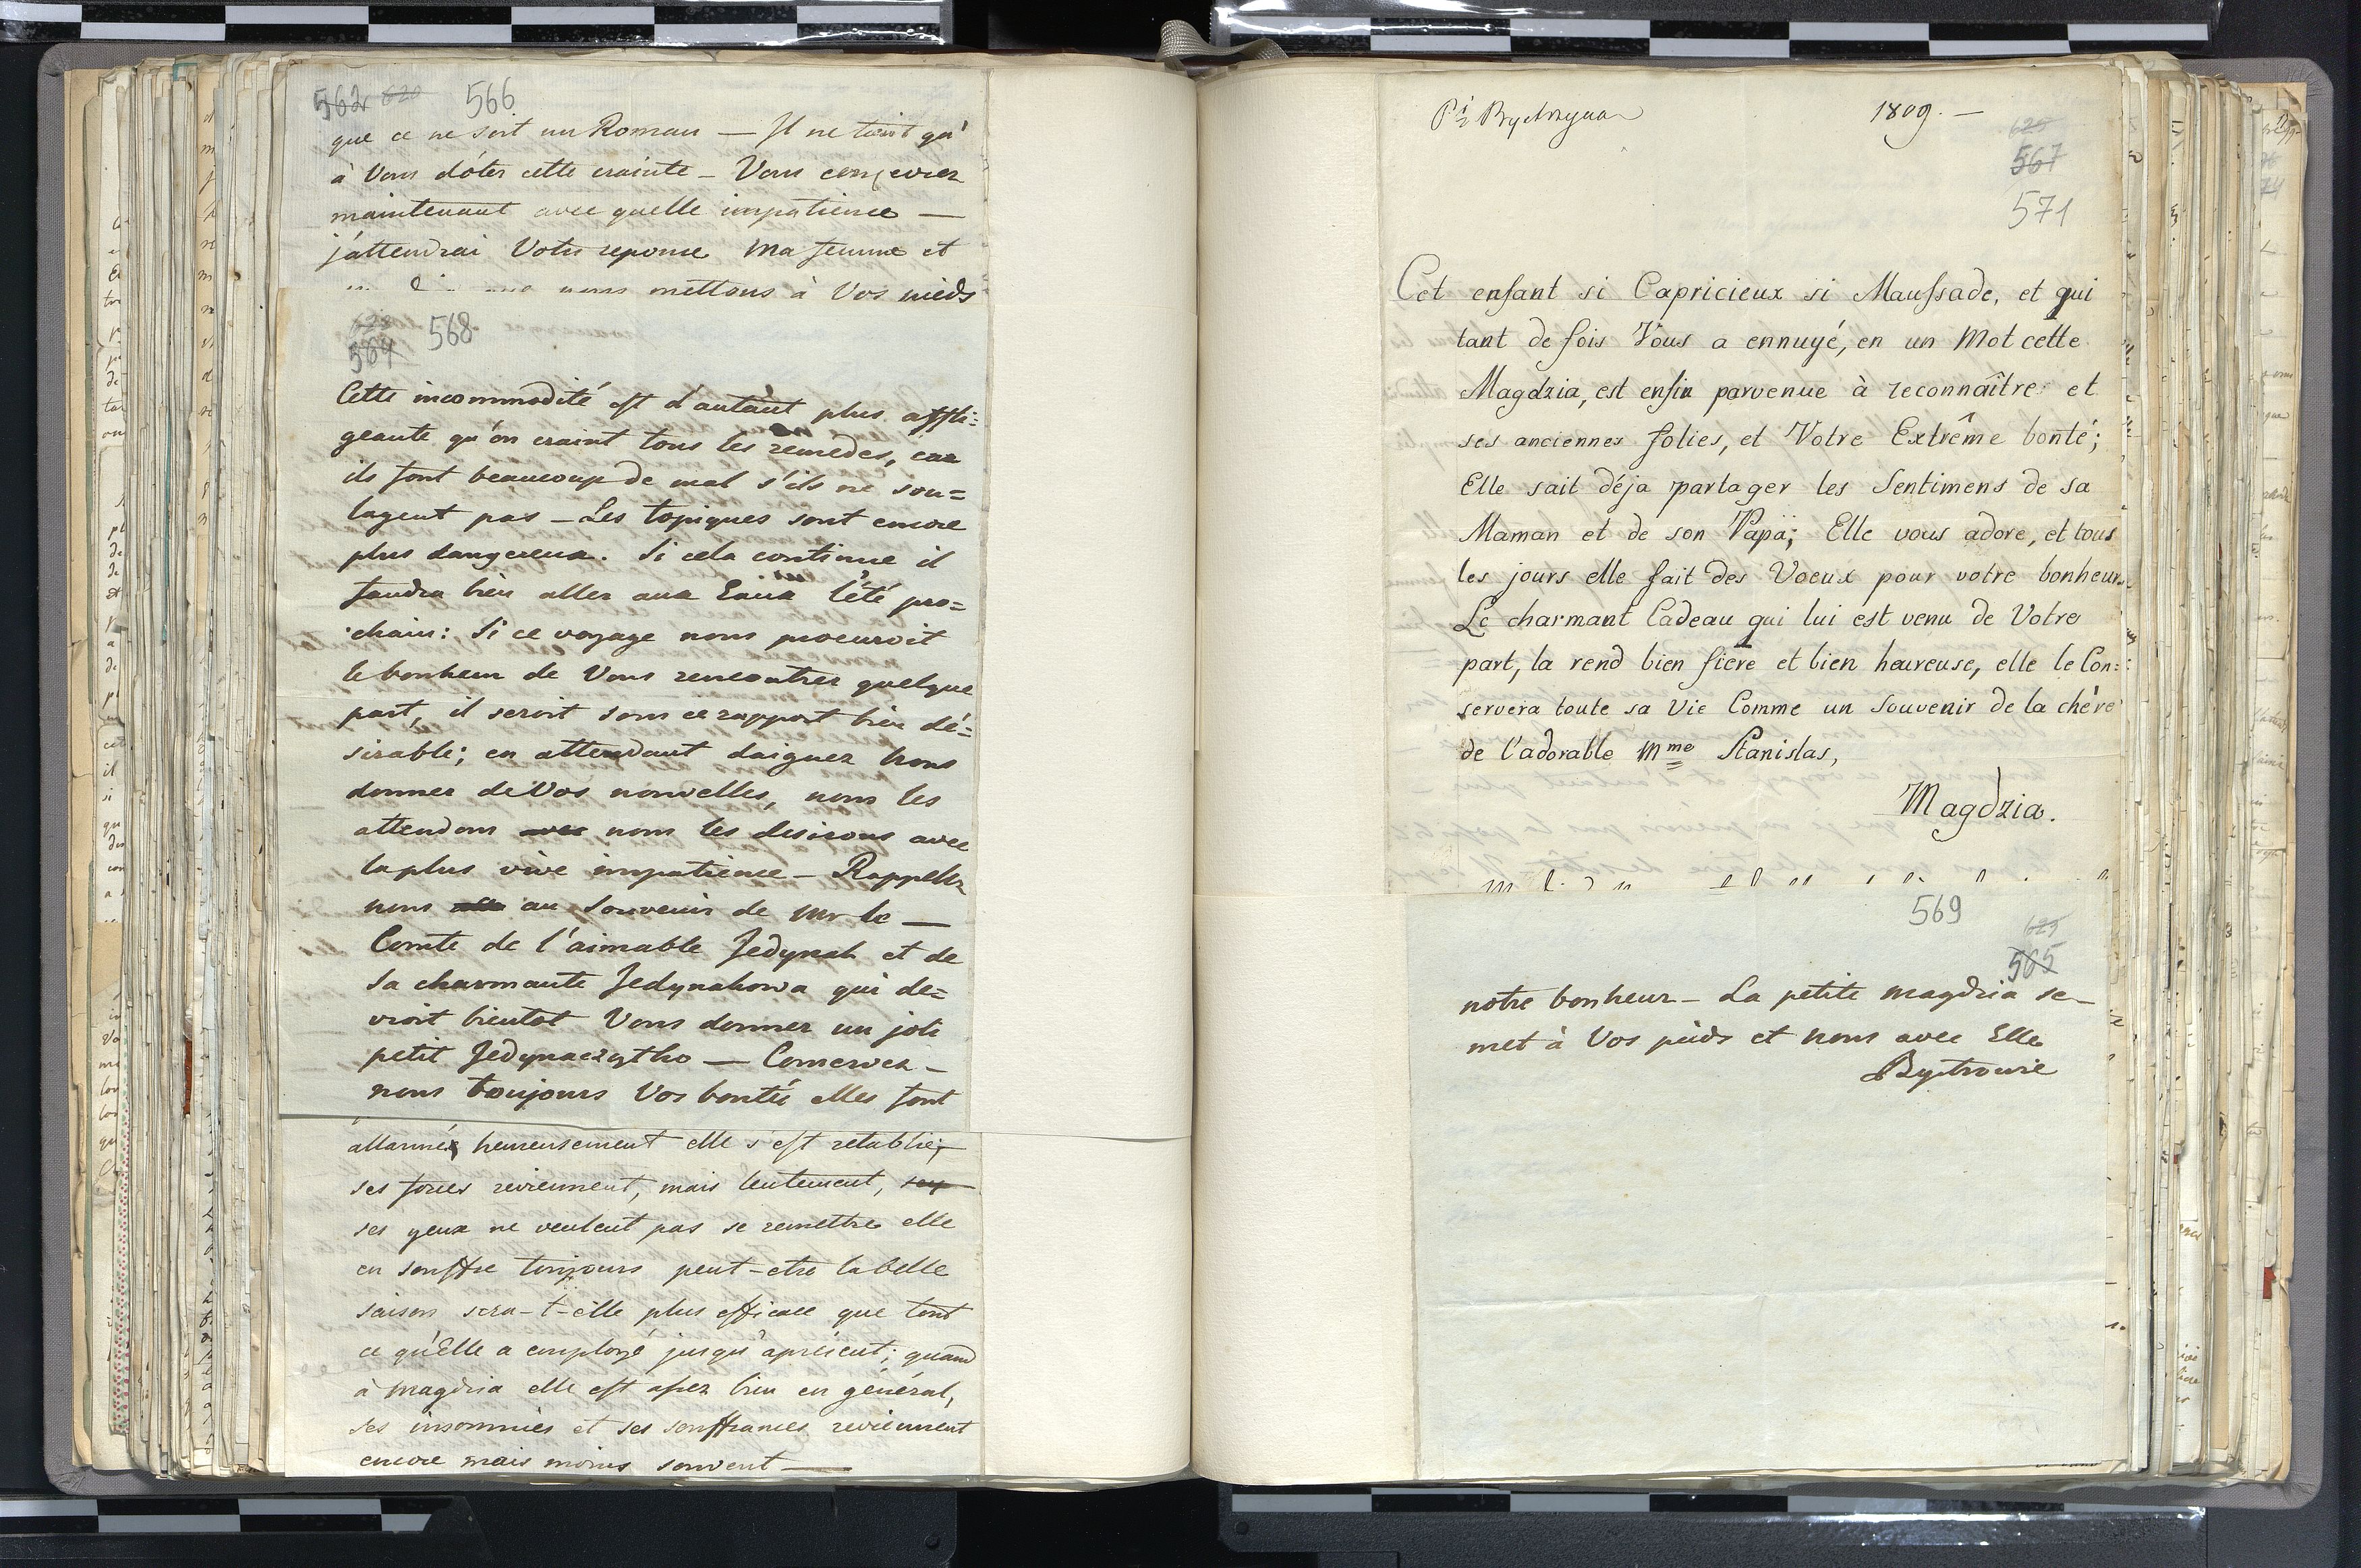 562 620 566
que ce ne soit un Roman — Il ne tient qu'
à Vous d'ôter cette crainte — Vous concevrez
maintenant avec quelle impatience —
j'attendrai Votre reponse Ma femme et
nous mettons à Vos pieds
628 568
564
Cette incommodité est d'autant plus affli=
geante qu'on craint tous les remedes, car
ils font beaucoup de mal s'ils ne sou=
lagent pas — Les topiques sont encore
plus dangereux. Si cela continue il
faudra bien aller aux Eaux l'été pro=
chain: Si ce voyage nous procuroit
le bonheur de Vous rencontrer quelque
part, il seroit sous ce rapport bien dé=
sirable; en attendant daignez nous
donner de Vos nouvelles, nous les
attendons avec nous les desirons avec
la plus vive impatience — Rappellez
nous au souvenir de Mr le —
Comte de l'aimable Jedynak et de
sa charmante Jedynakowa qui de=
vroit bientot Vous donner un joli
petit Jedynaczytko — Conservez —
nous toujours Vos bontés elles font
allarmés heureusement elle s'est retablie;
ses forces reviennent, mais lentement, ses
ses yeux ne veulent pas se remettre elle
en souffre toujours peut-etre la belle
saison sera-t-elle plus efficace que tout
ce qu'Elle a employé jusqu'àprésent; quand
à Magdzia elle est assez bien en général,
ses insomnies et ses souffrances reviennent
encore mais moins souvent —
1809. —
625
567
571
Cet enfant si Capricieux si Maussade, et qui
tant de fois Vous a ennuyé, en un Mot cette
Magdzia, est enfin parvenue à reconnaître et
ses anciennes folies, et Votre Extrême bonté;
Elle sait déja partager les Sentimens de sa
Maman et de son Papa; Elle vous adore, et tous
les jours elle fait des Voeux pour votre bonheur.
Le charmant Cadeau qui lui est venu de Votre
part, la rend bien fiere et bien heureuse, elle le Con=
servera toute sa Vie Comme un Souvenir de la chère
de l'adorable Mme Stanislas,
Magdzia.
569
625
565
notre bonheur — La petite Magdzia se —
met à Vos pieds et nous avec Elle